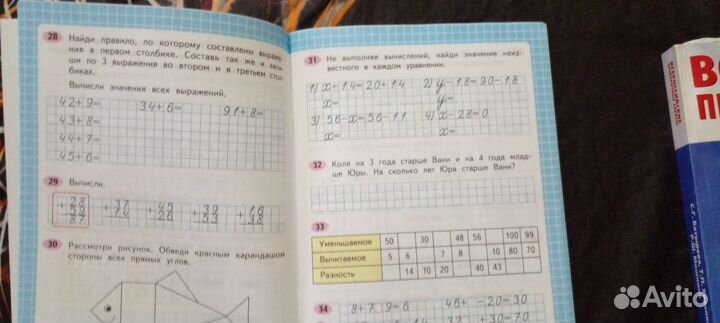 28 Найди правило, по которому составлены выраже-
ния в первом столбике. Составь так же и запи-
ши по 3 выражения во втором и в третьем стол-
биках.
Вычисли значения всех выражений.
42+9= 34+6= 91+8=
43+8=
44+7=
45+6=
29 Вычисли.
+28 +37 +45 +39 +16
59 74 26 53 38
87
30 Рассмотри рисунок. Обведи красным карандашом
стороны всех прямых углов.
31 Не выполняя вычислений, найди значение неиз-
вестного в каждом уравнении.
1) x+14=20+14 2) y-18=90-18
x= y=
3) 56-x=56-11 4) x-28=0
x= x=
32 Коля на 3 года старше Вани и на 4 года млад-
ше Юры. На сколько лет Юра старше Вани?
33
Уменьшаемое 50 30 48 56 100 99
Вычитаемое 5 6 7 8 10 80 70
Разность 14 10 20 40 43
34 8+7 9=6 46+ -20=30
+30=70
Avito